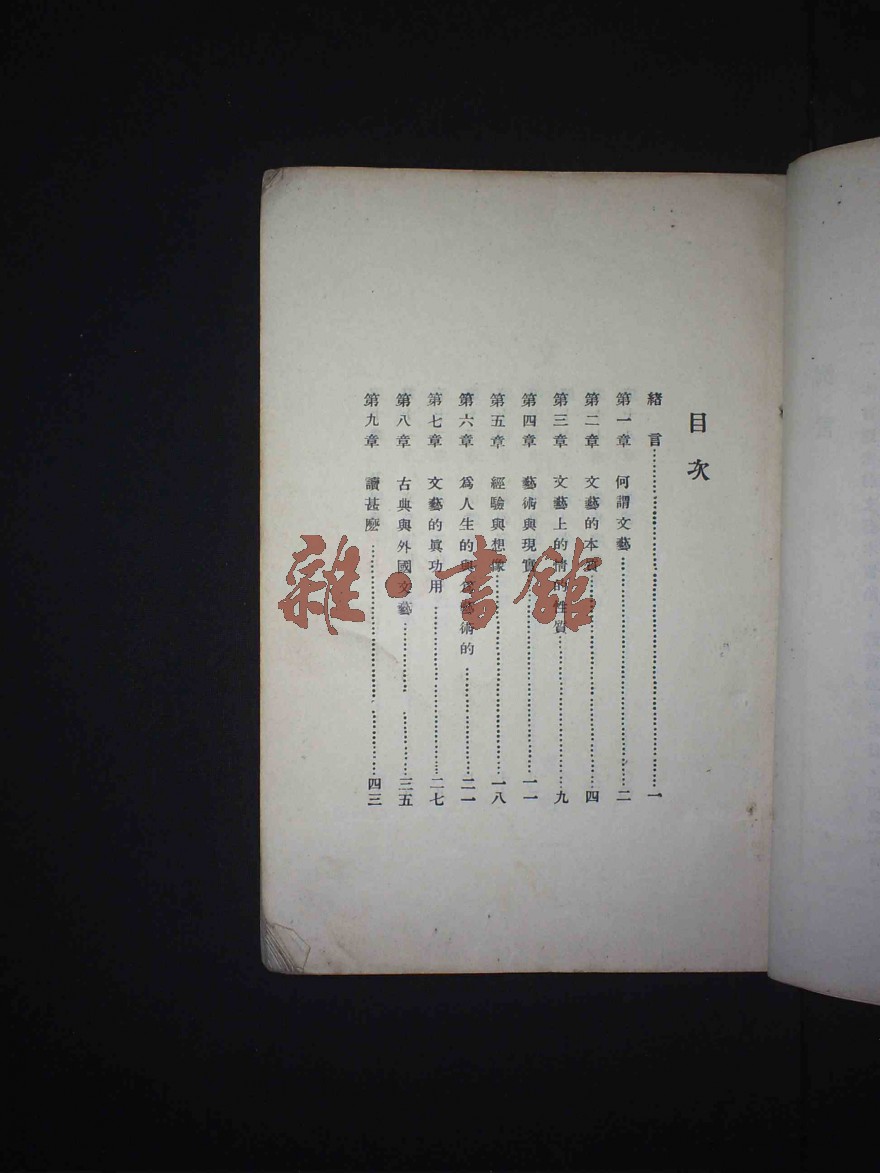 目次
緒言⋯⋯⋯⋯⋯⋯⋯⋯⋯⋯一
第一章 何謂文藝⋯⋯⋯⋯⋯⋯⋯⋯二
第二章 文藝的本質⋯⋯⋯⋯⋯⋯⋯⋯四
第三章 文藝上的情的性質⋯⋯⋯⋯⋯⋯九
第四章 藝術與現實⋯⋯⋯⋯⋯⋯⋯⋯一一
第五章 經驗與想像⋯⋯⋯⋯⋯⋯⋯⋯一八
第六章 爲人生的與爲藝術的⋯⋯⋯⋯二一
第七章 文藝的眞功用⋯⋯⋯⋯⋯⋯二七
第八章 古典與外國文藝⋯⋯⋯⋯⋯⋯三五
第九章 讀甚麽⋯⋯⋯⋯⋯⋯⋯⋯四三
雜·書館